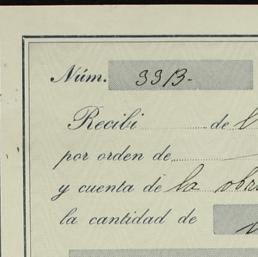 Núm. 3313.-
Recibí de
por orden de
y cuenta de la
la cantidad de